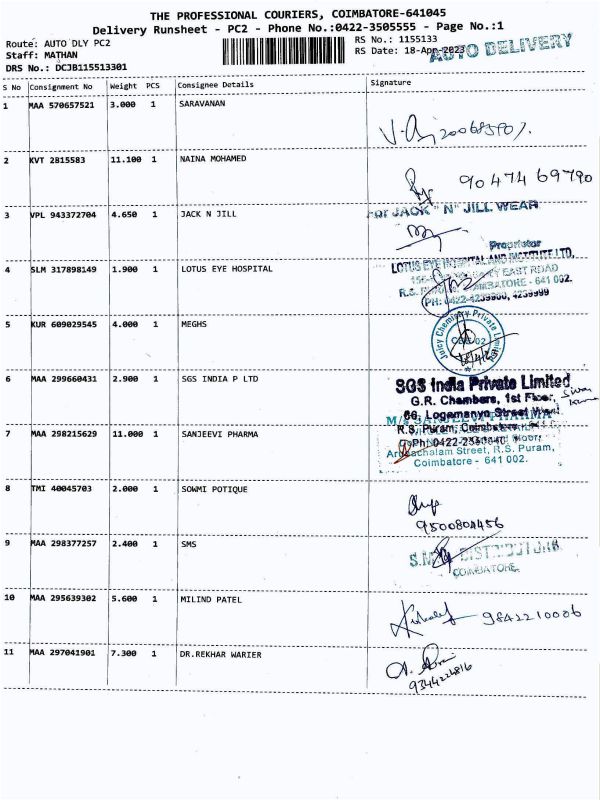 THE PROFESSIONAL COURIERS, COIMBATORE-641045
Delivery Runsheet - PC2 - Phone No.:0422-3505555 - Page No.:1
Route: AUTO DLY PC2
RS No.: 1155133
Staff: MATHAN
RS Date: 18-Apr-2023
AUTO DELIVERY
DRS No.: DCJB115513301
S No Consignment No Weight PCS Consignee Details Signature
1 MAA 570657521 3.000 1 SARAVANAN
2 KVT 2815583 11.100 1 NAINA MOHAMED
9047469790
3 VPL 943372704 4.650 1 JACK N JILL
For JACK "N" JILL WEAR
Proprietor
4 SLM 317898149 1.900 1 LOTUS EYE HOSPITAL
LOTUS EYE HOSPITAL AND INSTITUTE LTD.
EAST ROAD
R.S. COIMBATORE - 641 002.
PH: 0422-4239900, 4239999
5 KUR 609029545 4.000 1 MEGHS
Juicy Chemistry Private Limited
6 MAA 299660431 2.900 1 SGS INDIA P LTD
SGS India Private Limited
G.R. Chambers, 1st Floor,
66, Logamanya Street West
R.S. Puram, Coimbatore
7 MAA 298215629 11.000 1 SANJEEVI PHARMA
M/s SANJEEVI PHARMA
Floor,
Arunachalam Street, R.S. Puram,
Coimbatore - 641 002.
8 TMI 40045703 2.000 1 SOWMI POTIQUE
9500804456
9 MAA 298377257 2.400 1 SMS
DISTRIBUTORS
COIMBATORE.
10 MAA 295639302 5.600 1 MILIND PATEL
9842210006
11 MAA 297041901 7.300 1 DR.REKHAR WARIER
9344224816